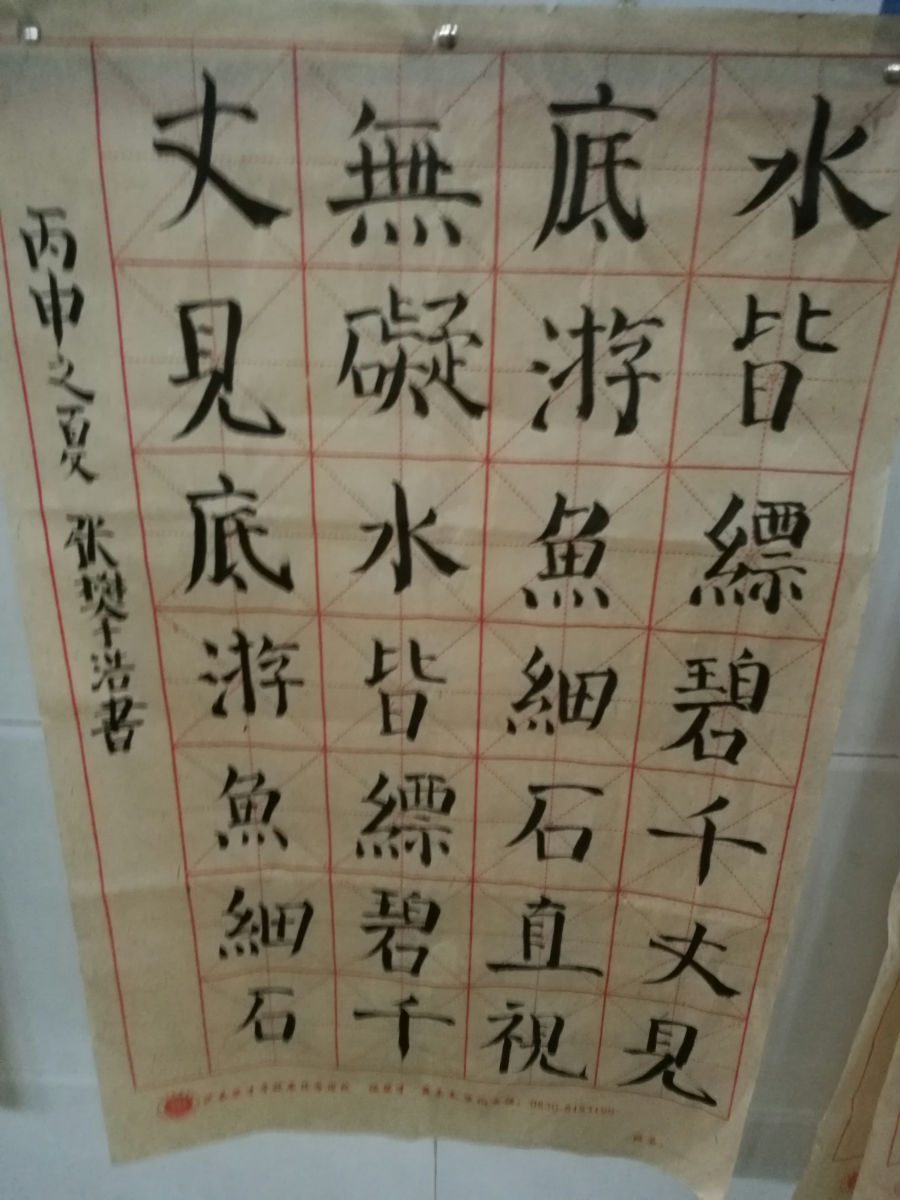 水皆縹碧千丈見
底游魚細石直視
無礙水皆縹碧千
丈見底游魚細石
丙申之夏 张攀浩書